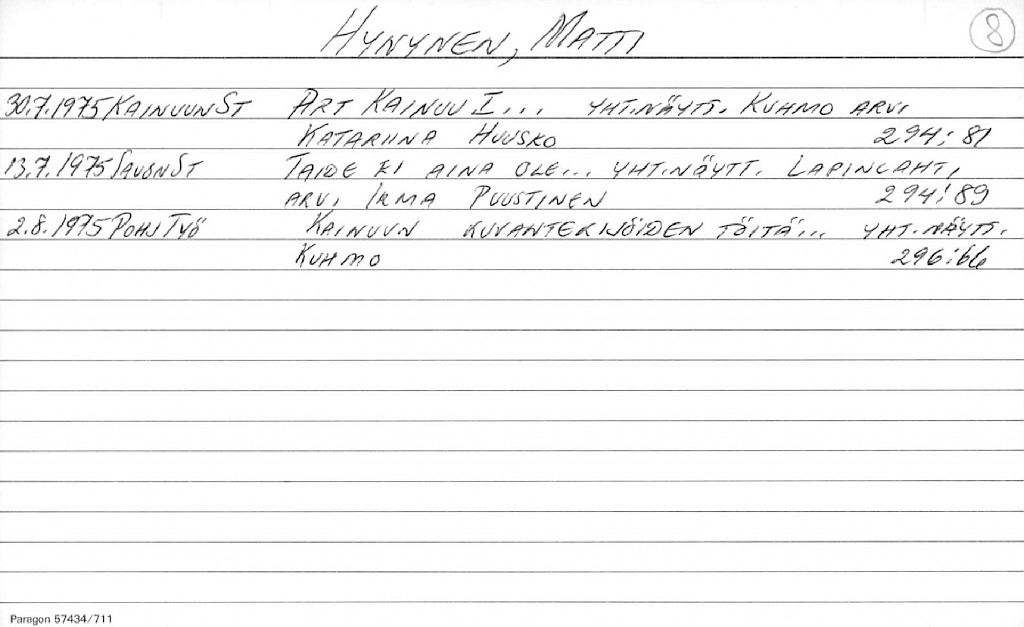 HYNYNEN, MATTI
8
30.7.1975 KAINUUN ST ART KAINUU I... YHT.NÄYTT. KUHMO ARV.
KATARIINA HUUSKO 294:81
13.7.1975 SAVON ST TAIDE EI AINA OLE... YHT.NÄYTT. LAPINLAHTI,
ARV. IRMA PUUSTINEN 294:89
2.8.1975 POHJ TYÖ KAINUUN KUVANTEKIJÖIDEN TÖITÄ... YHT.NÄYTT.
KUHMO 296:66
Paragon 57434/711